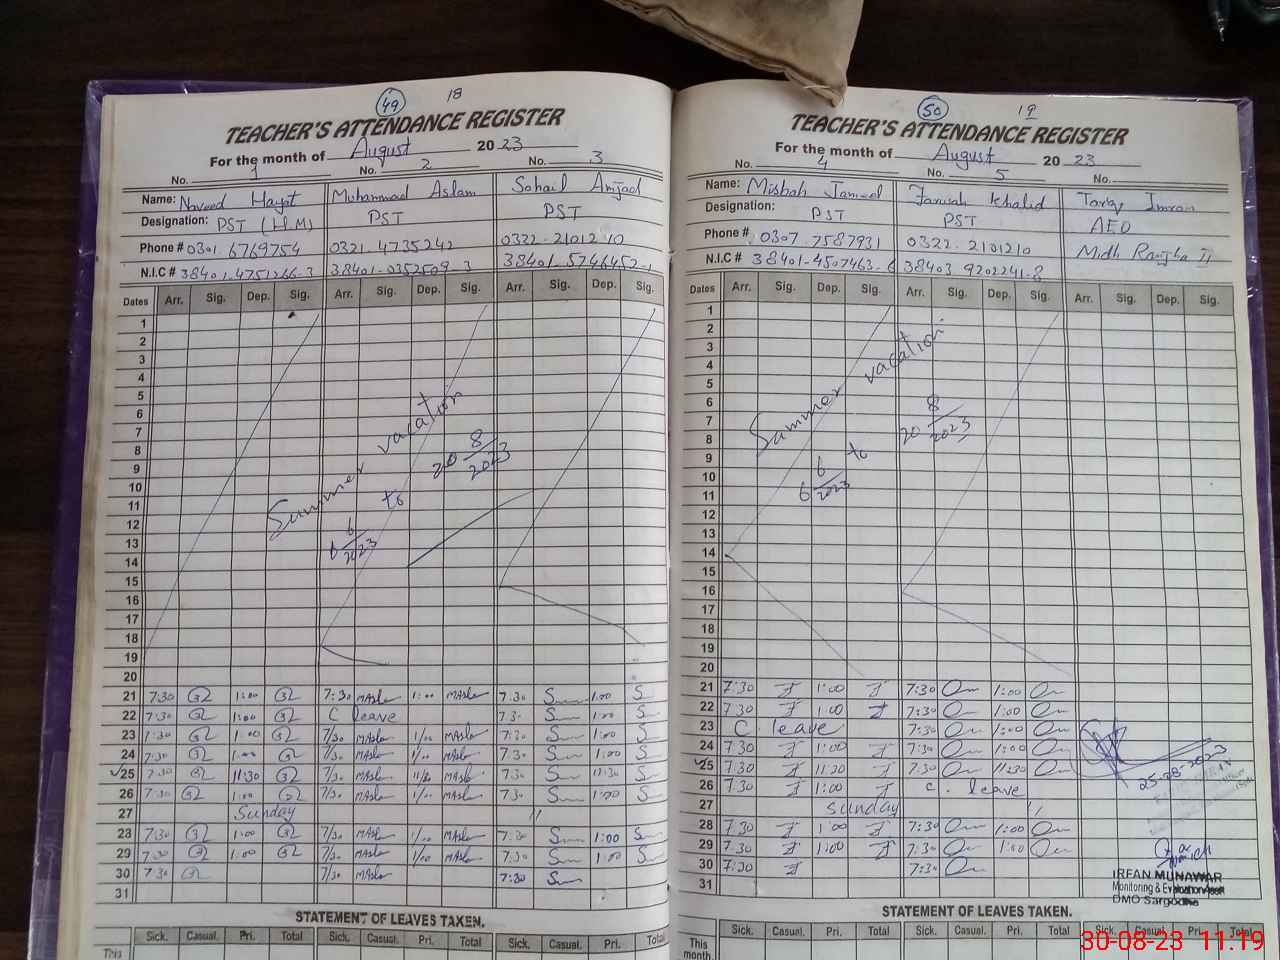 49 18
TEACHER'S ATTENDANCE REGISTER
For the month of August 2023
No. 1 No. 2 No. 3
Name: Naveed Hayat Muhammad Aslam Sohail Amjad
Designation: PST (H.M) PST PST
Phone # 0301 6769754 0321 4735242 0322-2101210
N.I.C # 38401-4751266-3 38401-0352509-3 38401-5746452-1
Dates Arr. Sig. Dep. Sig. Arr. Sig. Dep. Sig. Arr. Sig. Dep. Sig.
1
2
3
4
5
6
7
8
9
10
11
12
13
14
15
16
17
18
19
20
Summer vacation
6 6/2023 to 20 8/2023
21 7:30 1:00 7:30 MAslam 1:00 MAslam 7:30 1:00
22 7:30 1:00 C leave 7:30 1:00
23 7:30 1:00 7/30 MAslam 1/00 MAslam 7:30 1:00
24 7:30 1:00 7/30 MAslam 1/00 MAslam 7:30 1:00
25 7:30 11:30 7/30 MAslam 11/30 MAslam 7:30 11:30
26 7:30 1:00 7/30 MAslam 1/00 MAslam 7:30 1:00
27 Sunday "
28 7:30 1:00 7/30 MAslam 1/00 MAslam 7:30 1:00
29 7:30 1:00 7/30 MAslam 1/00 MAslam 7:30 1:00
30 7:30 7/30 MAslam 7:30
31
STATEMENT OF LEAVES TAKEN.
Sick. Casual. Pri. Total Sick. Casual. Pri. Total Sick. Casual. Pri. Total
This
50 19
TEACHER'S ATTENDANCE REGISTER
For the month of August 2023
No. 4 No. 5 No.
Name: Misbah Jamal Farwah Khalid Tariq Imran
Designation: PST PST AEO
Phone # 0307 7587931 0322-2101210 Midh Ranjha II
N.I.C # 38401-4507463-6 38403 9202241-8
Dates Arr. Sig. Dep. Sig. Arr. Sig. Dep. Sig. Arr. Sig. Dep. Sig.
1
2
3
4
5
6
7
8
9
10
11
12
13
14
15
16
17
18
19
20
Summer vacation
6 6/2023 to 20 8/2023
21 7:30 1:00 7:30 1:00
22 7:30 1:00 7:30 1:00
23 C. leave 7:30 1:00
24 7:30 1:00 7:30 1:00
25 7:30 11:30 7:30 11:30
26 7:30 1:00 C. leave
27 Sunday "
28 7:30 1:00 7:30 1:00
29 7:30 1:00 7:30 1:00
30 7:30 7:30
31
25-08-2023
IRFAN MUNAWAR
Monitoring & Evaluation Asstt
DMO Sargodha
STATEMENT OF LEAVES TAKEN.
Sick. Casual. Pri. Total Sick. Casual. Pri. Total Sick. Casual. Pri. Total
This
month
30-08-23 11.19